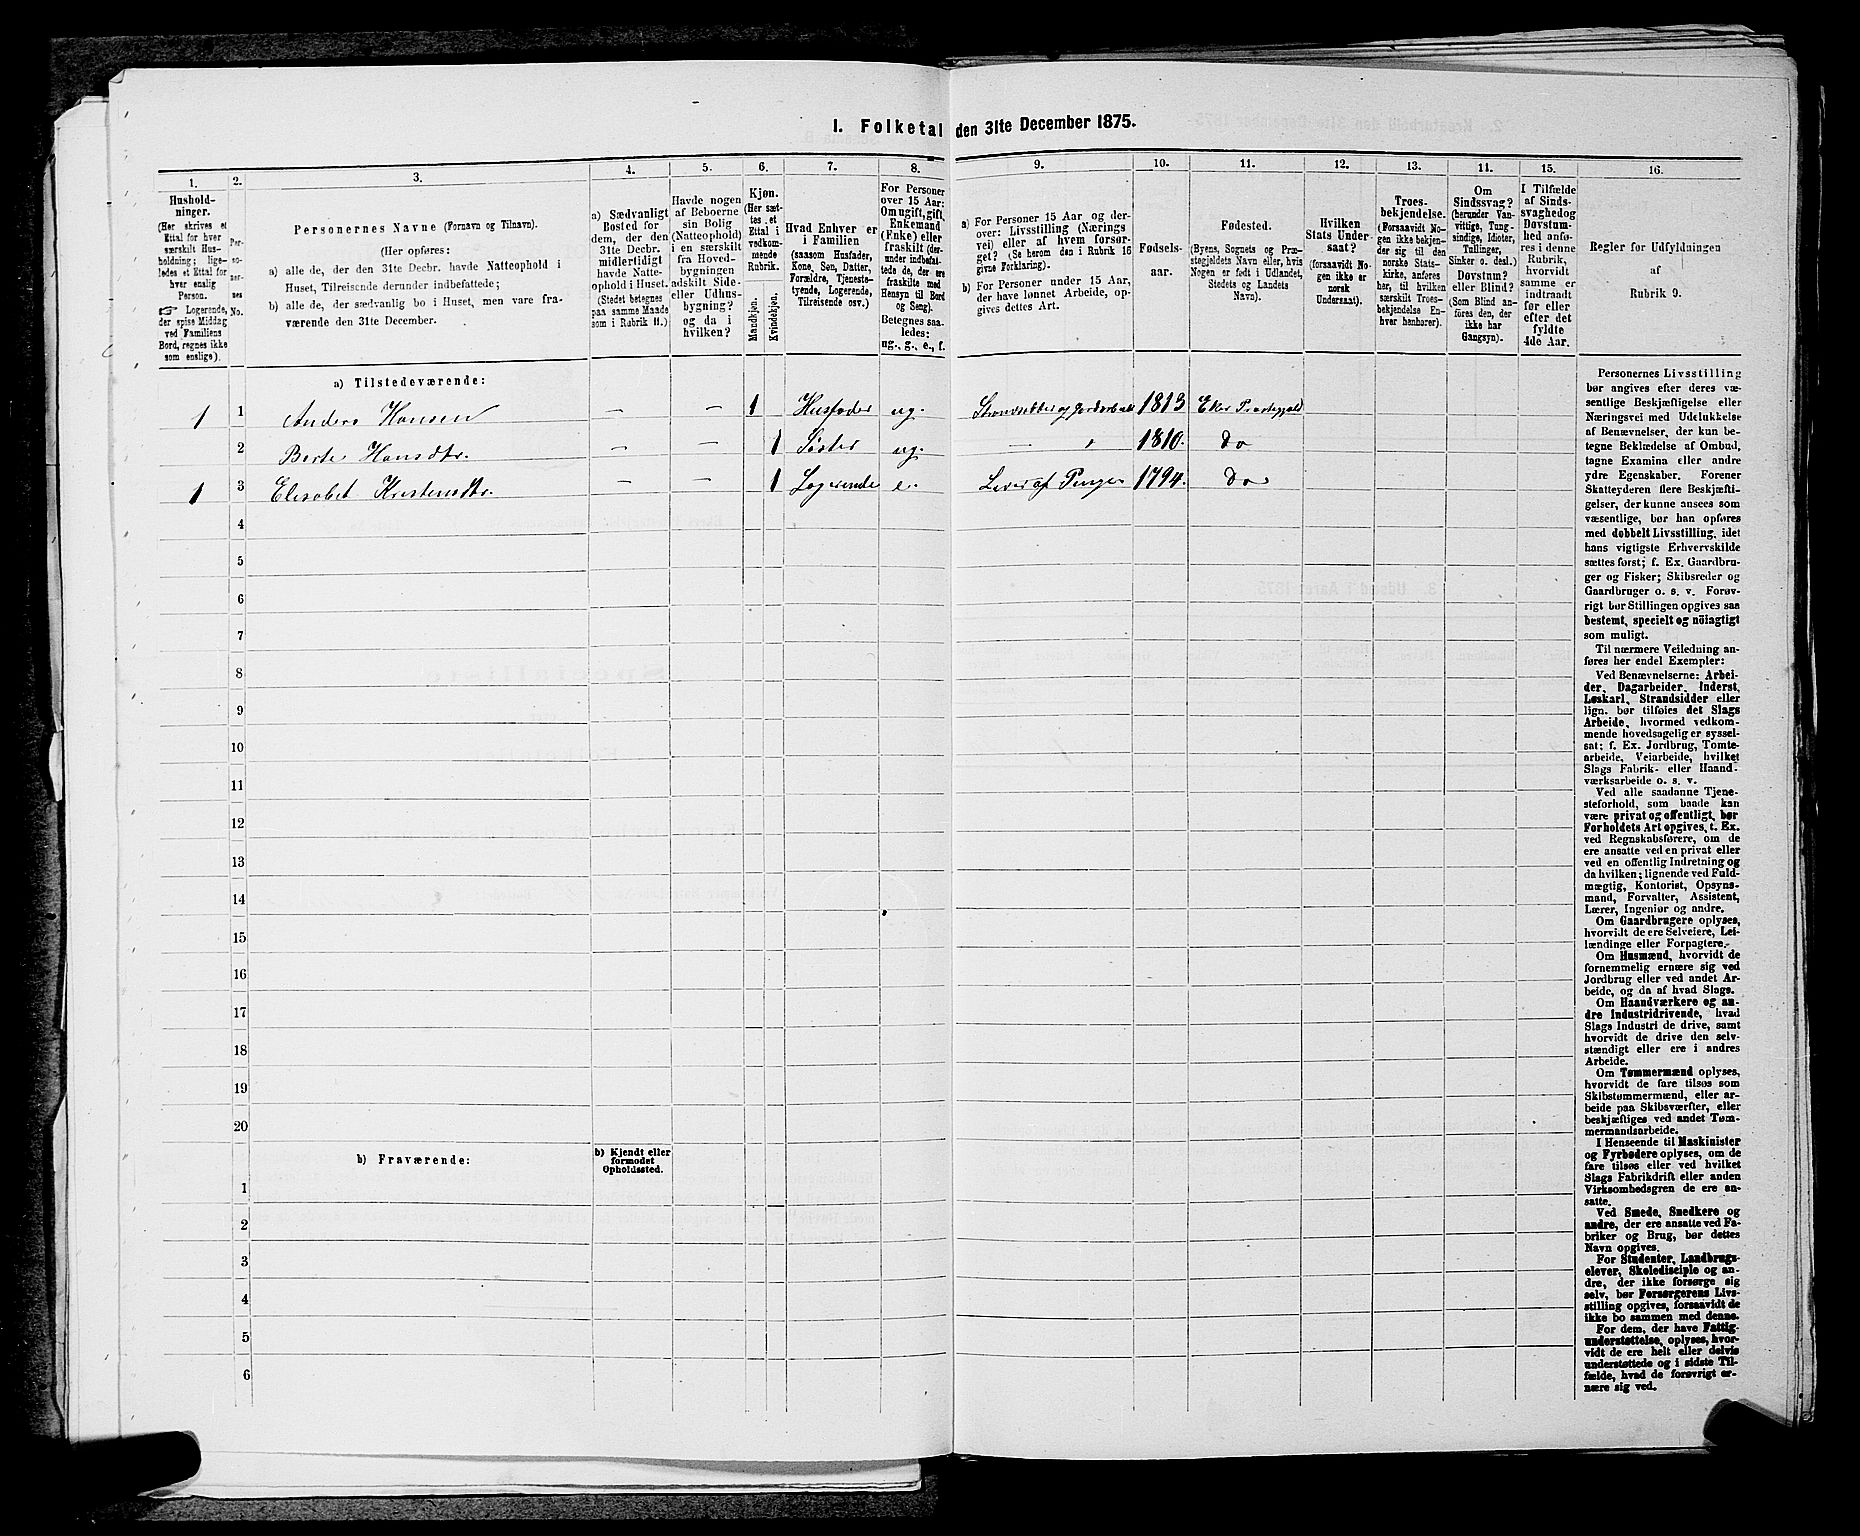 I. Folketal den 31te December 1875.
1. 2. 3. 4. 5. 6. 7. 8. 9. 10. 11. 12. 13. 11. 15. 16.
Hushold-
ninger.
(Her skrives et
Ettal for hver
særskilt Hus-
holdning; lige-
ledes et Ettal for
hver enslig
Person.
☞ Logerende,
der spise Middag
ved Familiens
Bord, regnes ikke
som enslige).
Per-
so-
ner-
nes
No.
Personernes Navne (Fornavn og Tilnavn).
(Her opføres:
a) alle de, der den 31te Decbr. havde Natteophold i
Huset, Tilreisende derunder indbefattede;
b) alle de, der sædvanlig bo i Huset, men vare fra-
værende den 31te December.
a) Sædvanligt
Bosted for
dem, der den
31te Decbr.
midlertidigt
havde Natte-
ophold i Huset.
(Stedet betegnes
paa samme Maade
som i Rubrik 11.)
Havde nogen
af Beboerne
sin Bolig
(Natteophold)
i en særskilt
fra Hoved-
bygningen
adskilt Side-
eller Udhus-
bygning?
og da i
hvilken?
Kjøn.
(Her sæt-
tes et
Ettal i
vedkom-
mende
Rubrik.
Mandkjøn.
Kvindekjøn.
Hvad Enhver er
i Familien
(saasom Husfader,
Kone, Søn, Datter,
Forældre, Tjeneste-
tyende, Logerende,
Tilreisende osv.)
For Personer
over 15 Aar:
Om ugift, gift,
Enkemand
(Enke) eller
fraskilt (der-
under indbefat-
tede de, der ere
fraskilte med
Hensyn til Bord
og Seng).
Betegnes saa-
ledes:
ug., g., e., f.
a) For Personer 15 Aar og der-
over: Livsstilling (Nærings
vei) eller af hvem forsør-
get? (Se herom den i Rubrik 16
givne Forklaring).
b) For Personer under 15 Aar,
der have lønnet Arbeide, op-
gives dettes Art.
Fødsels-
aar.
Fødested.
(Byens, Sognets og Præ-
stegjeldets Navn eller, hvis
Nogen er født i Udlandet,
Stedets og Landets
Navn).
Hvilken
Stats Under-
saat?
(forsaavidt No-
gen ikke er
norsk
Undersaat).
Troes-
bekjendelse.
(Forsaavidt No-
gen ikke bekjen-
der sig til den
norske Stats-
kirke, anføres
her, til hvilken
særskilt Troes-
bekjendelse En-
hver henhører).
Om
Sindssvag?
(herunder Van-
vittige, Tung-
sindige, Idioter,
Tullinger,
Sinker o. desl.)
Døvstum?
eller Blind?
(Som Blind an-
føres den, der
ikke har
Gangsyn).
I Tilfælde
af Sinds-
svaghed og
Døvstum-
hed anfø-
res i denne
Rubrik,
hvorvidt
samme er
indtraadt
før eller
efter det
fyldte
4de Aar.
Regler for Udfyldningen
af
Rubrik 9.
a) Tilstedeværende:
1 1 Anders Hansen — — 1 Husfader ug. 1813 Eker Prestegjeld
2 Berte Hansdtr. — — 1 Søster ug. — " 1810. Do
1 3 Elisabet Kristensdtr. — — 1 Logerende e. Lever af Penger 1794. Do
4
5
6
7
8
9
10
11
12
13
14
15
16
17
18
19
20
b) Fraværende:
b) Kjendt eller
formodet
Opholdssted.
1
2
3
4
5
6
Personernes Livsstilling
bør angives efter deres væ-
sentlige Beskjæftigelse eller
Næringsvei med Udelukkelse
af Benævnelser, der kun be-
tegne Beklædelse af Ombud,
tagne Examina eller andre
ydre Egenskaber. Forener
Skatteyderen flere Beskjæfti-
gelser, der kunne ansees som
væsentlige, bør han opføres
med dobbelt Livsstilling, idet
hans vigtigste Erhvervskilde
sættes først; f. Ex. Gaardbru-
ger og Fisker; Skibsreder og
Gaardbruger o. s. v. Forøv-
rigt bør Stillingen opgives saa
bestemt, specielt og nöiagtigt
som muligt.
Til nærmere Veiledning an-
føres her endel Exempler:
Ved Benævnelserne: Arbei-
der, Dagarbeider, Inderst,
Løskarl, Strandsidder eller
lign. bør tilføies det Slags
Arbeide, hvormed vedkom-
mende hovedsagelig er syssel-
sat; f. Ex. Jordbrug, Tomte-
arbeide, Veiarbeide, hvilket
Slags Fabrik- eller Haand-
værksarbeide o. s. v.
Ved alle saadanne Tjene-
steforhold, som baade kan
være privat og offentligt, bør
Forholdets Art opgives, t. Ex.
ved Regnskabsførere, om de
ere ansatte ved en privat eller
ved en offentlig Indretning og
da hvilken; lignende ved Fuld-
mægtig, Kontorist, Opsyns-
mand, Forvalter, Assistent,
Lærer, Ingeniør og andre.
Om Gaardbrugere oplyses,
hvorvidt de ere Selveiere, Lei-
lændinge eller Forpagtere.
Om Husmænd, hvorvidt de
fornemmelig ernære sig ved
Jordbrug eller ved andet Ar-
beide, og da af hvad Slags.
Om Haandværkere og an-
dre Industridrivende, hvad
Slags Industri de drive, samt
hvorvidt de drive den selv-
stændigt eller ere i andres
Arbeide.
Om Tømmermænd oplyses,
hvorvidt de fare tilsøs som
Skibstømmermænd, eller ar-
beide paa Skibsværfter, eller
beskjæftiges ved andet Tøm-
mermandsarbeide.
I Henseende til Maskinister
og Fyrbødere oplyses, om de
fare tilsøs eller ved hvilket
Slags Fabrikdrift eller anden
Virksomhedsgren de ere an-
satte.
Ved Smede, Snedkere og
andre, der ere ansatte ved Fa-
briker og Brug, bør dettes
Navn opgives.
For Studenter, Landbrugs-
elever, Skoledisciple og an-
dre, der ikke forsørge sig
selv, bør Forsørgerens Livs-
stilling opgives, forsaavidt de
ikke bo sammen med denne.
For dem, der have Fattig-
understøttelse, oplyses, hvor-
vidt de ere helt eller delvis
understøttede og i sidste Til-
fælde, hvad de forøvrigt er-
nære sig ved.